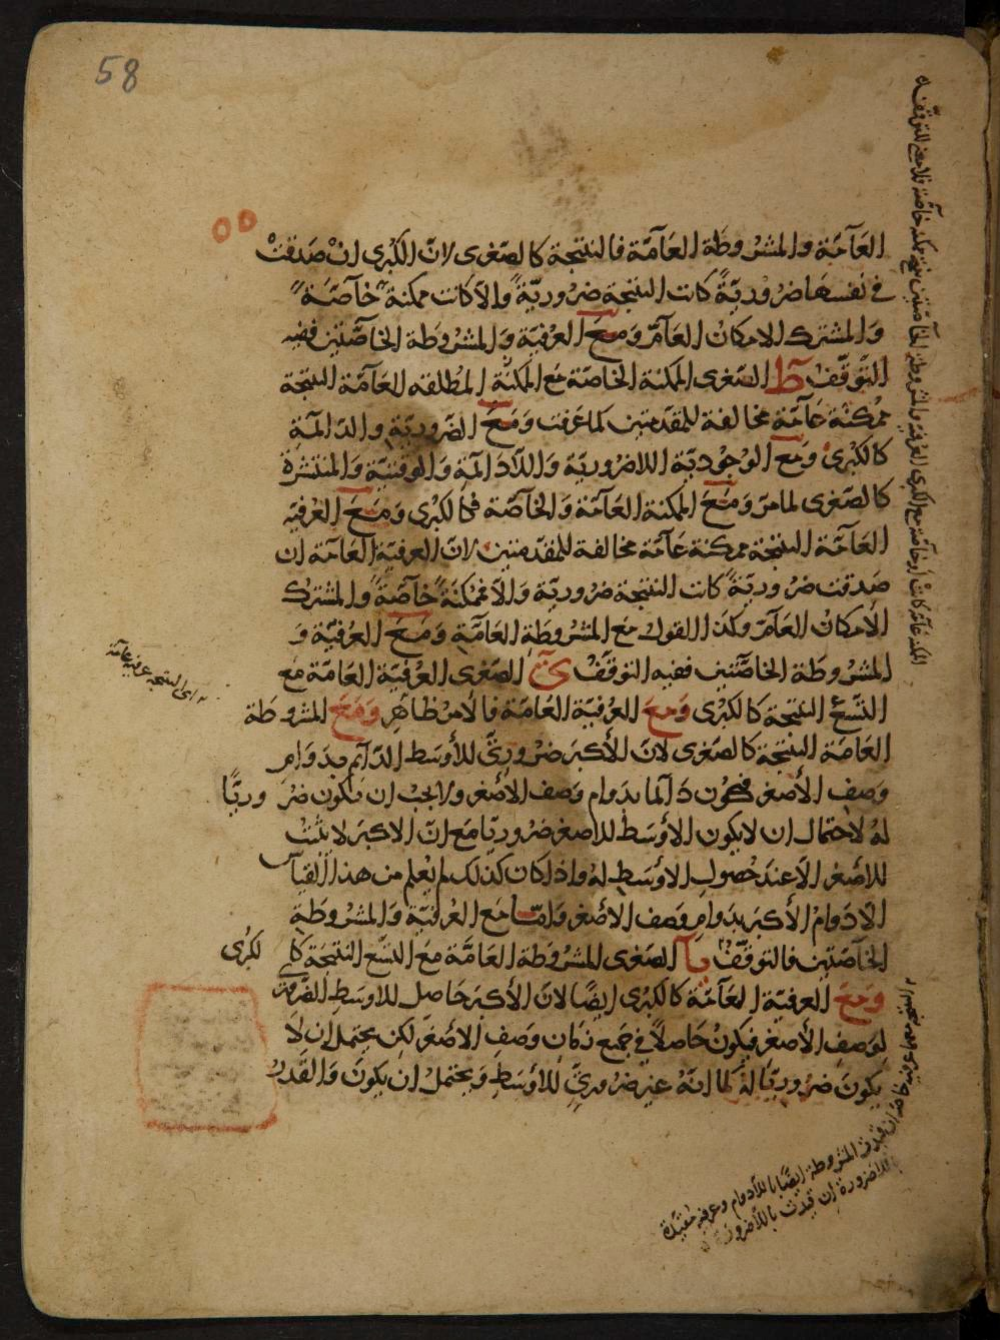 58
٥٥
العآمّة والمشروطة العامّة فالنتيجة كالصّغرى لانّ الكبرى انْ صَدقتْ
في نفسها ضروريّةً كانت النتيجة ضروريّةً والّا كانت ممكنة خاصّة
والمشترك الامكان العامّ ومع العرفيّة والمشروطة الخاصّتين ففيه
التوقّف ط الصّغرى الممكنة الخاصّة مع الممكنة المطلقه العامّة النتيجة
ممكنة عامّة مخالفة للمقدمتين لما عرفت ومع الضروريّة والدائمة
كالكبرى ومع الوجوديّة اللاضروريّة واللّادائمة والوقتيّة والمنتشرة
كالصّغرى لما مرّ ومع الممكنة العامّة والخاصّة فكالكبرى ومع العرفيّة
العامّة النتيجة ممكنة عامّة مخالفة للمقدّمتين لانّ العرفيّة العامّة ان
صدقت ضروريّةً كانت النتيجة ضروريّة والّا ممكنةً خاصّةً والمشترك
الامكان العامّ وكذا القول مع المشروطة العامّة ومع العرفيّة و
المشروطة الخاصّتين ففيه التوقّف ى الصّغرى العرفيّة العامّة مع
التّسع النتيجة كالكبرى ومع العرفيّة العامّة فالامر ظاهر ومع المشروطة
العامّة النتيجة كالصغرى لانّ الأكبر ضروريّ للأوسط الدّائم بدوام
وصف الأصغر فيكون دائما بدوام وصف الأصغر ولا يجب ان يكون ضروريًّا
لهُ لاحتمال ان لا يكون الأوسط للاصغر ضروريّا مع انّ الاكبر لا يثبت
للاصغر الّا عند حصول الاوسط لهُ واذا كان كذلك لم يعلم من هذا القياس
الّا دوامُ الأكبر بدوام وصف الاصغر وامّا مع العرفيّة والمشروطة
الخاصّتين فالتوقّف يا الصغرى المشروطة العامّة مع التّسع النتيجة كالكبرى
ومع العرفيّة العآمّة كالكبرى ايضًا لانّ الأكبر حاصل للاوسط الضرورى
لوصف الأصغر فيكون حاصلًا في جميع زمان وصف الاصغر لكن يحتمل ان لا
يكون ضروريّا لهُ كما انّهُ غير ضروريّ للاوسط ويحتمل ان يكون والقدر
اى النتيجة عرفية عامّة